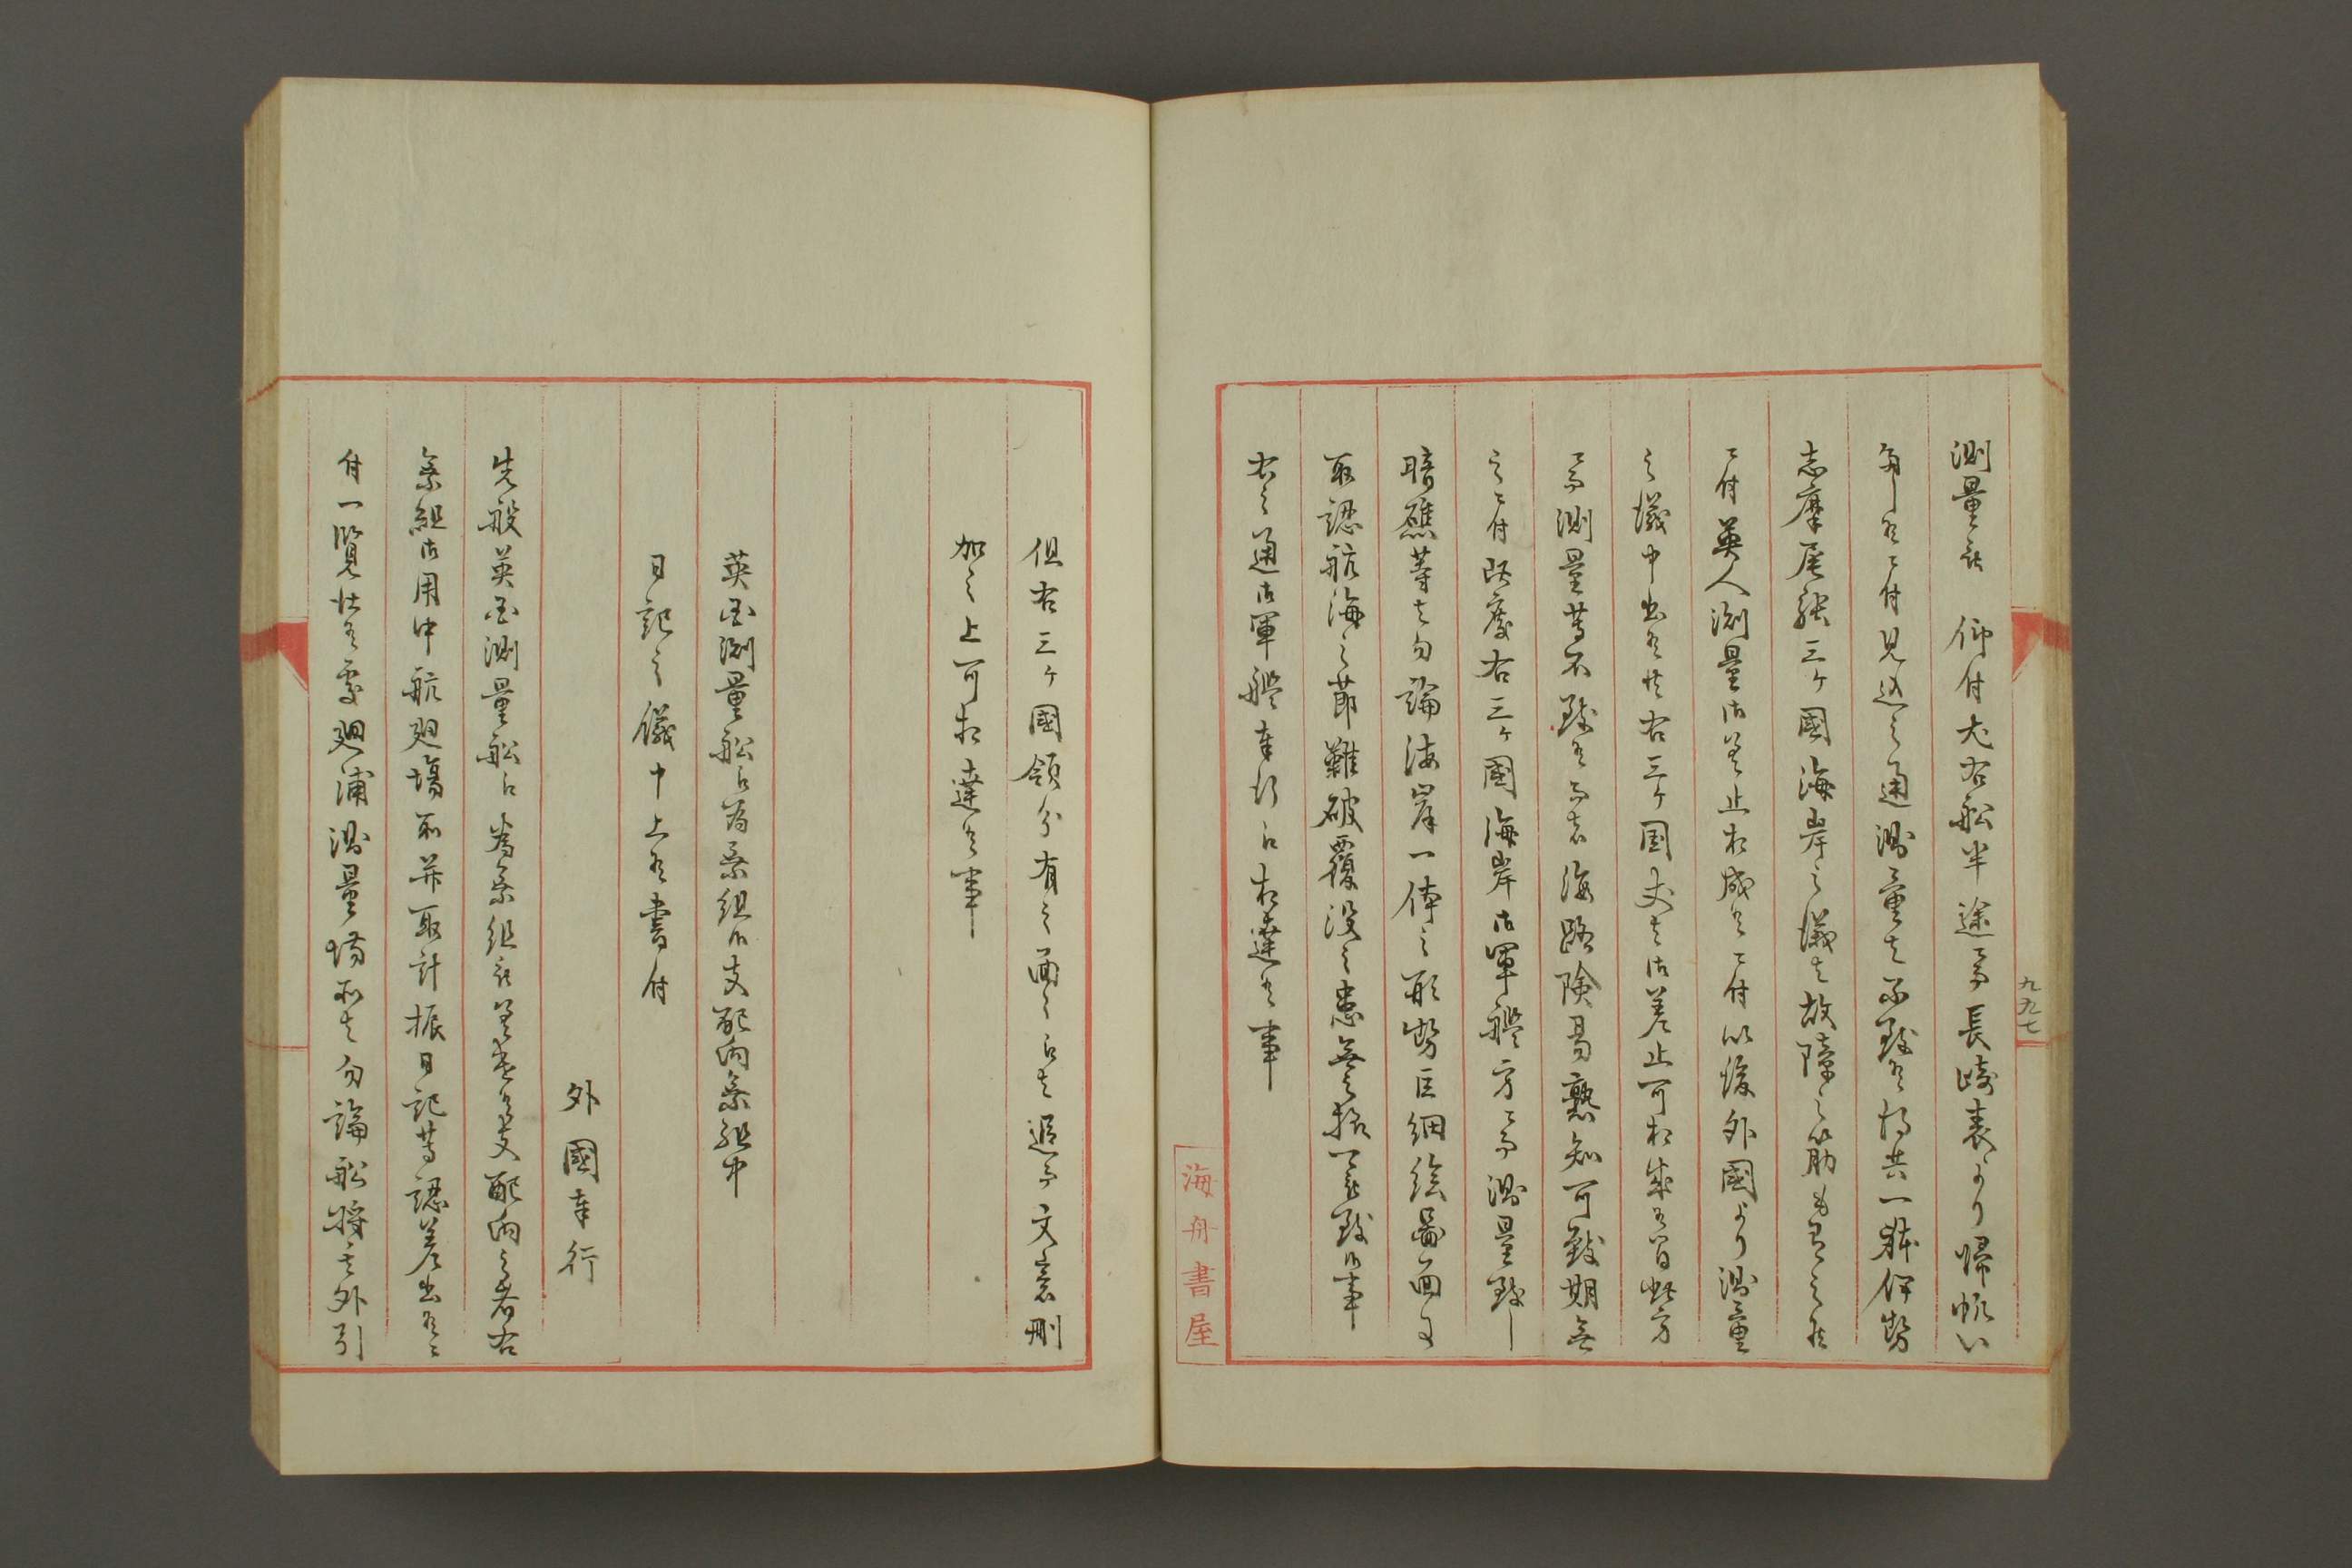 測量被 仰付尤右船半途ニ而長崎表より帰帆い
たし候ニ付見込之通測量者不致候得共一躰伊勢
志摩尾張三ヶ國海岸之儀者故障之筋も有之候
ニ付英人測量御差止相成候ニ付以後外國より測量
之儀申出候共右三ヶ国丈者御差止可相成候間此方
ニ而測量等不致候而者海路険易熟知可致期無
之ニ付此度右三ヶ國海岸御軍艦方ニ而測量致し
暗礁等者勿論海岸一体之形勢巨細絵圖面ニ
取認航海之節難破覆没之患無之様可被致候事
右之通御軍艦奉行江相達候事
九九七
海舟書屋
但右三ヶ國領分有之面々江者追而文意刪
加之上可相達候事
英国測量船江為乗組候支配向乗組中
日記之儀申上候書付
外國奉行
先般英国測量船江為乗組被差遣候支配向之者右
乗組御用中航廻場所并取計振日記等認差出候ニ
付一覧仕候處廻浦測量場所者勿論船将其外引